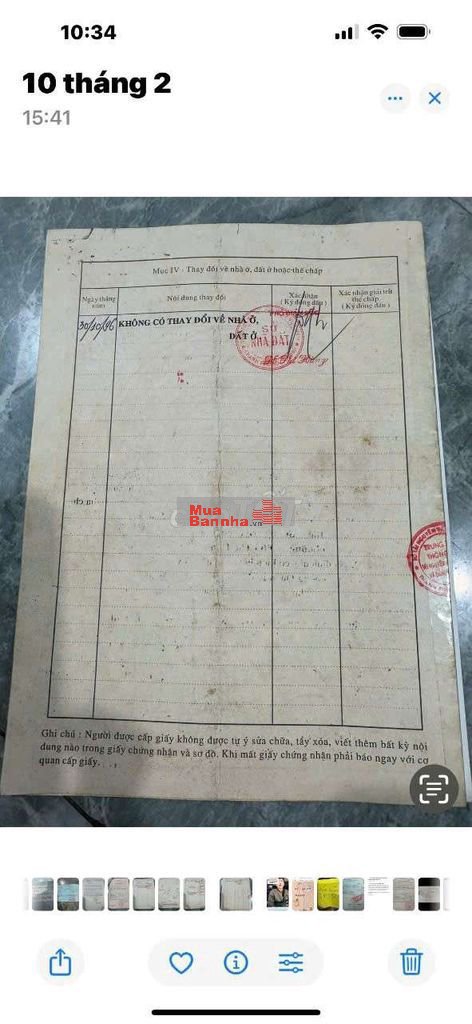 10:34
10 tháng 2
15:41
Mục IV - Thay đổi về nhà ở, đất ở hoặc thế chấp
Ngày tháng năm
Nội dung thay đổi
Xác nhận (Ký đóng dấu)
Xác nhận giải trừ thế chấp (Ký đóng dấu)
30/10/96
KHÔNG CÓ THAY ĐỔI VỀ NHÀ Ở,
ĐẤT Ở.
SỞ
NHÀ ĐẤT
Mua
Bannha.vn
TRUNG
THÔNG
Ghi chú : Người được cấp giấy không được tự ý sửa chữa, tẩy xóa, viết thêm bất kỳ nội
dung nào trong giấy chứng nhận và sơ đồ. Khi mất giấy chứng nhận phải báo ngay với cơ
quan cấp giấy.